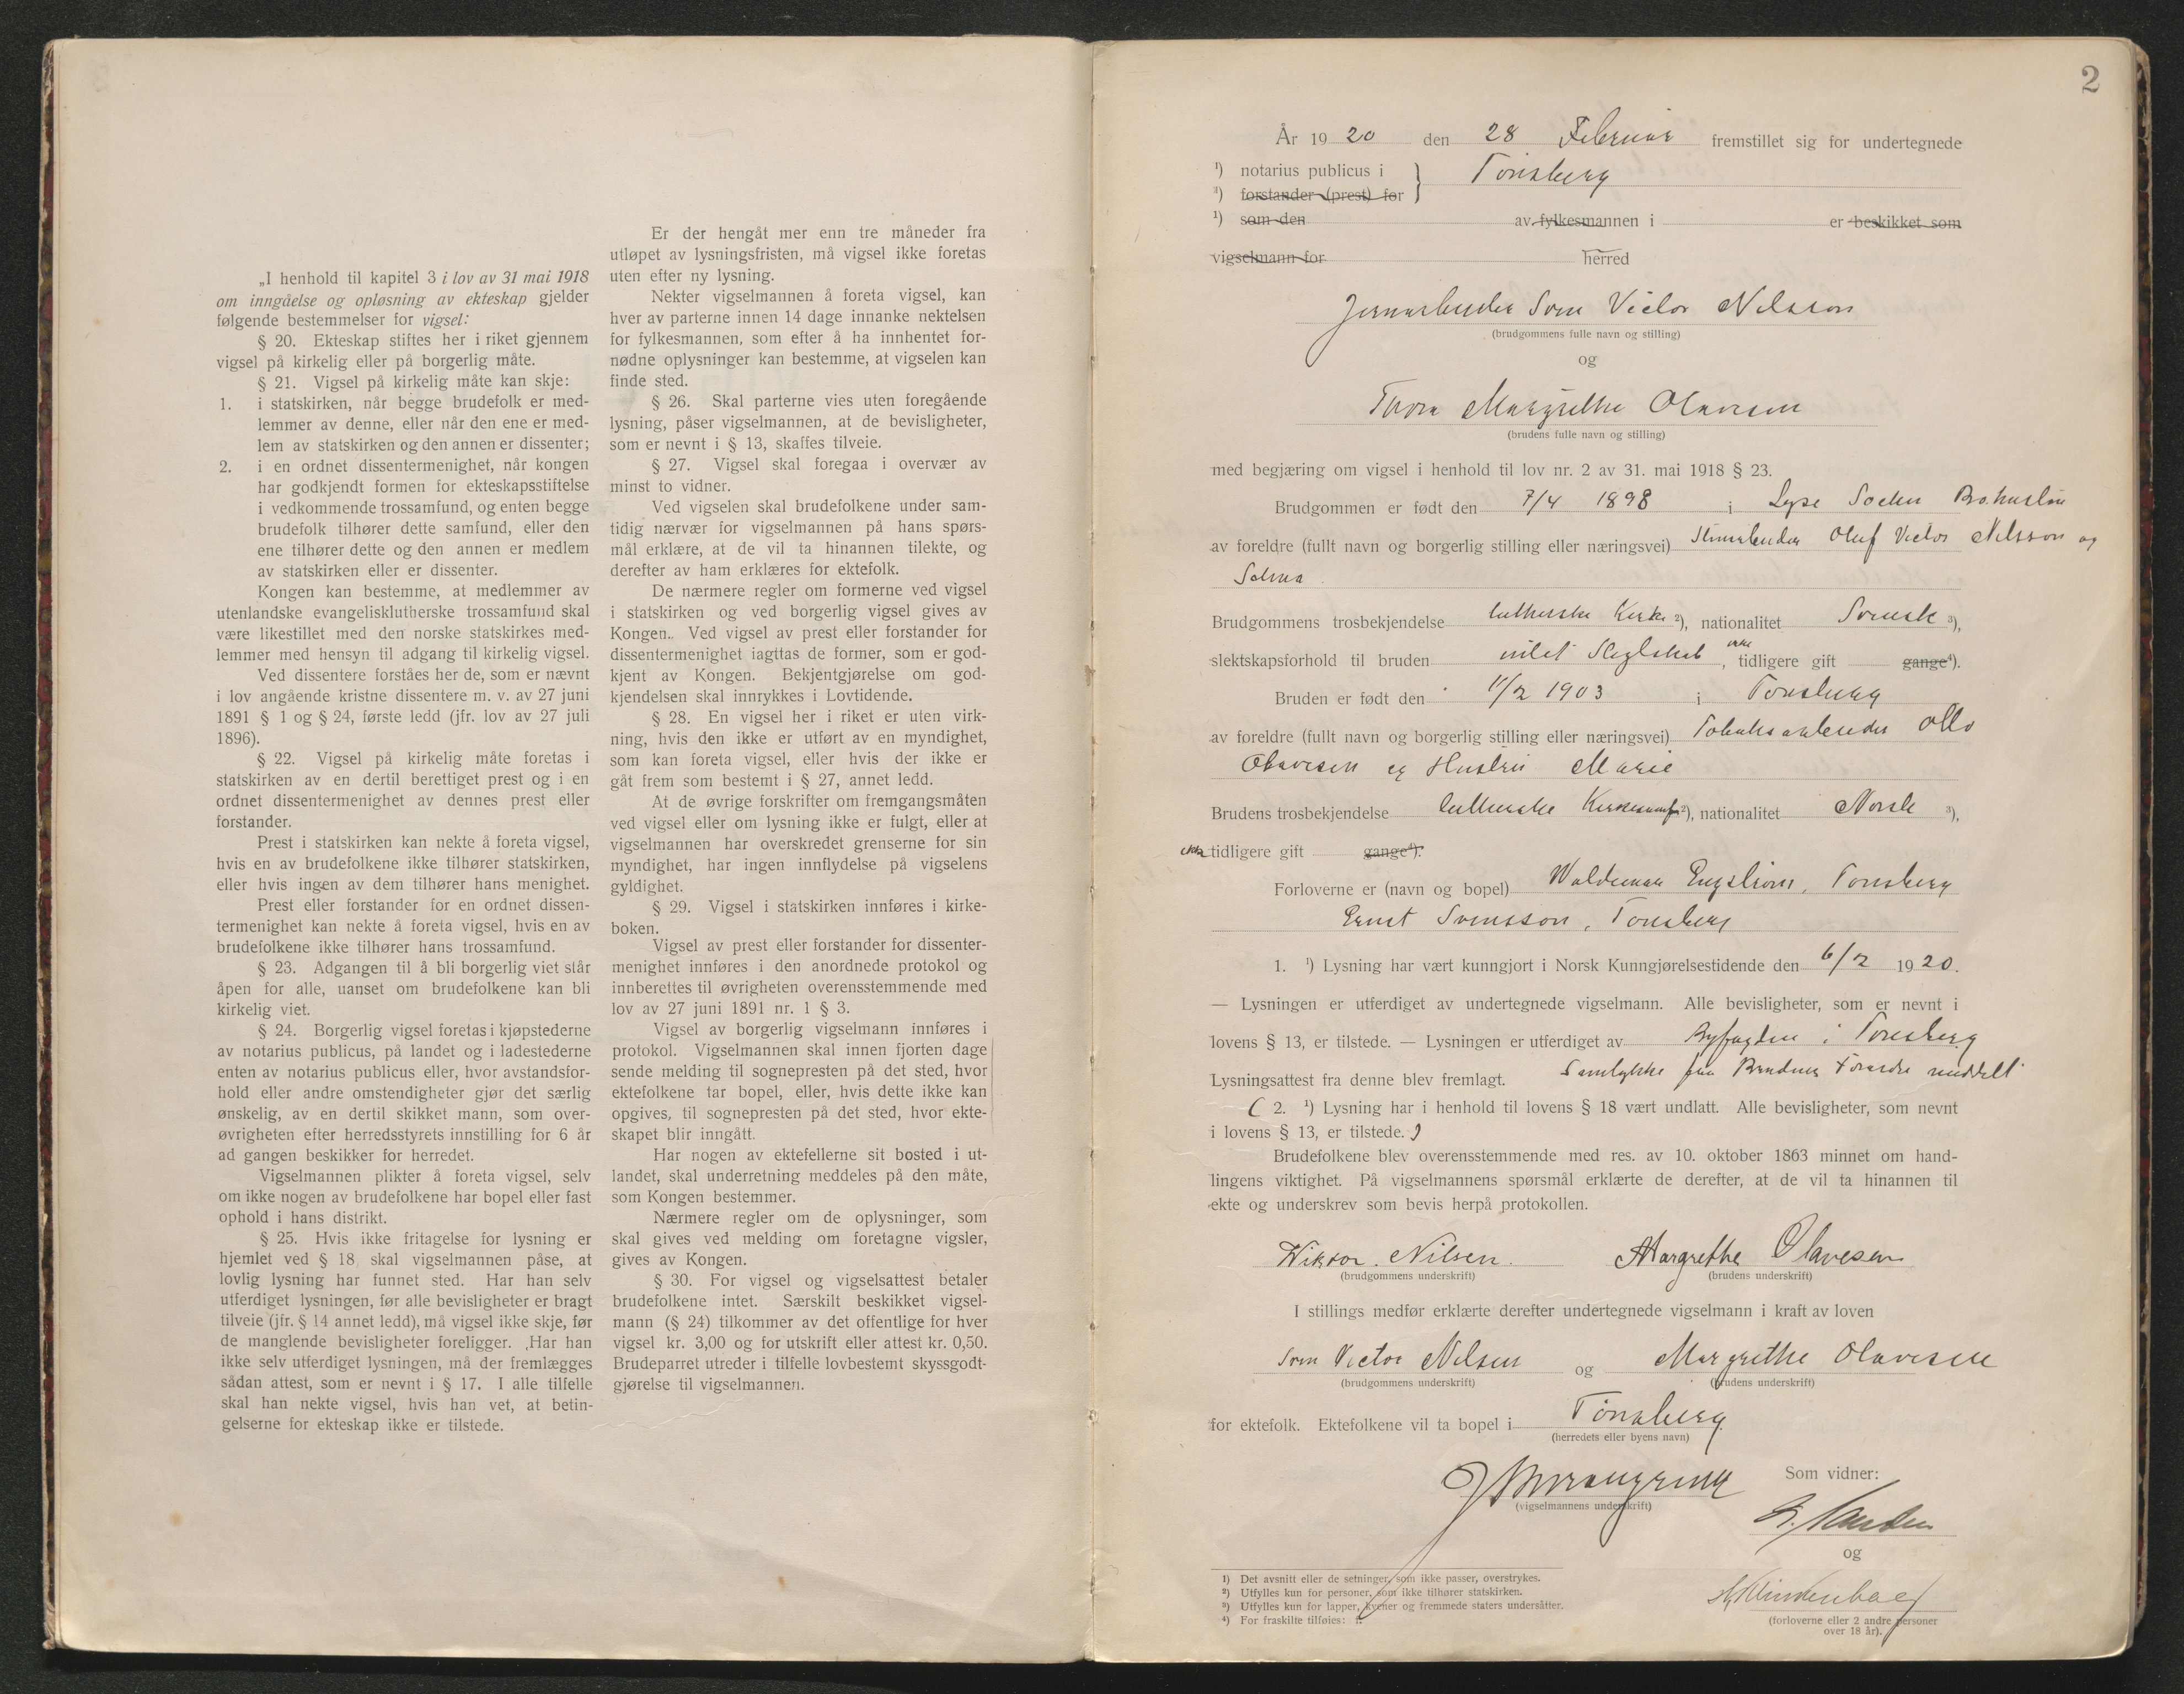 „I henhold til kapitel 3 i lov av 31 mai 1918
om inngåelse og opløsning av ekteskap gjelder
følgende bestemmelser for vigsel:
§ 20. Ekteskap stiftes her i riket gjennem
vigsel på kirkelig eller på borgerlig måte.
§ 21. Vigsel på kirkelig måte kan skje:
1. i statskirken, når begge brudefolk er med-
lemmer av denne, eller når den ene er med-
lem av statskirken og den annen er dissenter;
2. i en ordnet dissentermenighet, når kongen
har godkjendt formen for ekteskapsstiftelse
i vedkommende trossamfund, og enten begge
brudefolk tilhører dette samfund, eller den
ene tilhører dette og den annen er medlem
av statskirken eller er dissenter.
Kongen kan bestemme, at medlemmer av
utenlandske evangelisklutherske trossamfund skal
være likestillet med den norske statskirkes med-
lemmer med hensyn til adgang til kirkelig vigsel.
Ved dissentere forståes her de, som er nævnt
i lov angående kristne dissentere m. v. av 27 juni
1891 § 1 og § 24, første ledd (jfr. lov av 27 juli
1896).
§ 22. Vigsel på kirkelig måte foretas i
statskirken av en dertil berettiget prest og i en
ordnet dissentermenighet av dennes prest eller
forstander.
Prest i statskirken kan nekte å foreta vigsel,
hvis en av brudefolkene ikke tilhører statskirken,
eller hvis ingen av dem tilhører hans menighet.
Prest eller forstander for en ordnet dissen-
termenighet kan nekte å foreta vigsel, hvis en av
brudefolkene ikke tilhører hans trossamfund.
§ 23. Adgangen til å bli borgerlig viet står
åpen for alle, uanset om brudefolkene kan bli
kirkelig viet.
§ 24. Borgerlig vigsel foretas i kjøpstederne
av notarius publicus, på landet og i ladestederne
enten av notarius publicus eller, hvor avstandsfor-
hold eller andre omstendigheter gjør det særlig
ønskelig, av en dertil skikket mann, som over-
øvrigheten efter herredsstyrets innstilling for 6 år
ad gangen beskikker for herredet.
Vigselmannen plikter å foreta vigsel, selv
om ikke nogen av brudefolkene har bopel eller fast
ophold i hans distrikt.
§ 25. Hvis ikke fritagelse for lysning er
hjemlet ved § 18, skal vigselmannen påse, at
lovlig lysning har funnet sted. Har han selv
utferdiget lysningen, før alle bevisligheter er bragt
tilveie (jfr. § 14 annet ledd), må vigsel ikke skje, før
de manglende bevisligheter foreligger. Har han
ikke selv utferdiget lysningen, må der fremlægges
sådan attest, som er nevnt i § 17. I alle tilfelle
skal han nekte vigsel, hvis han vet, at betin-
gelserne for ekteskap ikke er tilstede.
Er der hengåt mer enn tre måneder fra
utløpet av lysningsfristen, må vigsel ikke foretas
uten efter ny lysning.
Nekter vigselmannen å foreta vigsel, kan
hver av parterne innen 14 dage innanke nektelsen
for fylkesmannen, som efter å ha innhentet for-
nødne oplysninger kan bestemme, at vigselen kan
finde sted.
§ 26. Skal parterne vies uten foregående
lysning, påser vigselmannen, at de bevisligheter,
som er nevnt i § 13, skaffes tilveie.
§ 27. Vigsel skal foregaa i overvær av
minst to vidner.
Ved vigselen skal brudefolkene under sam-
tidig nærvær for vigselmannen på hans spørs-
mål erklære, at de vil ta hinannen tilekte, og
derefter av ham erklæres for ektefolk.
De nærmere regler om formerne ved vigsel
i statskirken og ved borgerlig vigsel gives av
Kongen. Ved vigsel av prest eller forstander for
dissentermenighet iagttas de former, som er god-
kjent av Kongen. Bekjentgjørelse om god-
kjendelsen skal innrykkes i Lovtidende.
§ 28. En vigsel her i riket er uten virk-
ning, hvis den ikke er utført av en myndighet,
som kan foreta vigsel, eller hvis der ikke er
gåt frem som bestemt i § 27, annet ledd.
At de øvrige forskrifter om fremgangsmåten
ved vigsel eller om lysning ikke er fulgt, eller at
vigselmannen har overskredet grenserne for sin
myndighet, har ingen innflydelse på vigselens
gyldighet.
§ 29. Vigsel i statskirken innføres i kirke-
boken.
Vigsel av prest eller forstander for dissenter-
menighet innføres i den anordnede protokol og
innberettes til øvrigheten overensstemmende med
lov av 27 juni 1891 nr. 1 § 3.
Vigsel av borgerlig vigselmann innføres i
protokol. Vigselmannen skal innen fjorten dage
sende melding til sognepresten på det sted, hvor
ektefolkene tar bopel, eller, hvis dette ikke kan
opgives, til sognepresten på det sted, hvor ekte-
skapet blir inngått.
Har nogen av ektefellerne sit bosted i ut-
landet, skal underretning meddeles på den måte,
som Kongen bestemmer.
Nærmere regler om de oplysninger, som
skal gives ved melding om foretagne vigsler,
gives av Kongen.
§ 30. For vigsel og vigselsattest betaler
brudefolkene intet. Særskilt beskikket vigsel-
mann (§ 24) tilkommer av det offentlige for hver
vigsel kr. 3,00 og for utskrift eller attest kr. 0,50.
Brudeparret utreder i tilfelle lovbestemt skyssgodt-
gjørelse til vigselmannen.
2
År 1920 den 28 Februar fremstillet sig for undertegnede
¹) notarius publicus i Tønsberg
¹) forstander (prest) for
¹) som den av fylkesmannen i er beskikket som
vigselmann for herred
Jernarbeider Sven Victor Nilsson
(brudgommens fulle navn og stilling)
og
Thora Margrethe Olavesen
(brudens fulle navn og stilling)
med begjæring om vigsel i henhold til lov nr. 2 av 31. mai 1918 § 23.
Brudgommen er født den 7/4 1898 i Lyse Socken Bohuslän
av foreldre (fullt navn og borgerlig stilling eller næringsvei) Stenarbeider Oluf Victor Nilsson og
Selma
Brudgommens trosbekjendelse lutherske Kirke ²), nationalitet Svensk ³),
slektskapsforhold til bruden intet Slegtskab, ikke tidligere gift gange⁴).
Bruden er født den 11/2 1903 i Tønsberg
av foreldre (fullt navn og borgerlig stilling eller næringsvei) Tobaksarbeider Otto
Olavesen og Hustru Marie
Brudens trosbekjendelse lutherske Kirkesamf ²), nationalitet Norsk ³),
ikke tidligere gift gange⁴).
Forloverne er (navn og bopel) Waldemar Engström, Tønsberg
Ernst Svensson, Tønsberg
1. ¹) Lysning har vært kunngjort i Norsk Kunngjørelsestidende den 6/2 1920.
— Lysningen er utferdiget av undertegnede vigselmann. Alle bevisligheter, som er nevnt i
lovens § 13, er tilstede. — Lysningen er utferdiget av Byfogden i Tønsberg
Lysningsattest fra denne blev fremlagt. Samtykke fra Brudens Forældre meddelt
( 2. ¹) Lysning har i henhold til lovens § 18 vært undlatt. Alle bevisligheter, som nevnt
i lovens § 13, er tilstede. )
Brudefolkene blev overensstemmende med res. av 10. oktober 1863 minnet om hand-
lingens viktighet. På vigselmannens spørsmål erklærte de derefter, at de vil ta hinannen til
ekte og underskrev som bevis herpå protokollen.
Wiktor. Nilsen. Margrethe Olavesen
(brudgommens underskrift) (brudens underskrift)
I stillings medfør erklærte derefter undertegnede vigselmann i kraft av loven
Sven Victor Nilsen og Margrethe Olavesen
(brudgommens underskrift) (brudens underskrift)
for ektefolk. Ektefolkene vil ta bopel i Tønsberg
(herredets eller byens navn)
(vigselmannens underskrift)
Som vidner:
og
(forloverne eller 2 andre personer
over 18 år).
¹) Det avsnitt eller de setninger, som ikke passer, overstrykes.
²) Utfylles kun for personer, som ikke tilhører statskirken.
³) Utfylles kun for lapper, kvener og fremmede staters undersåtter.
⁴) For fraskilte tilføies: f.